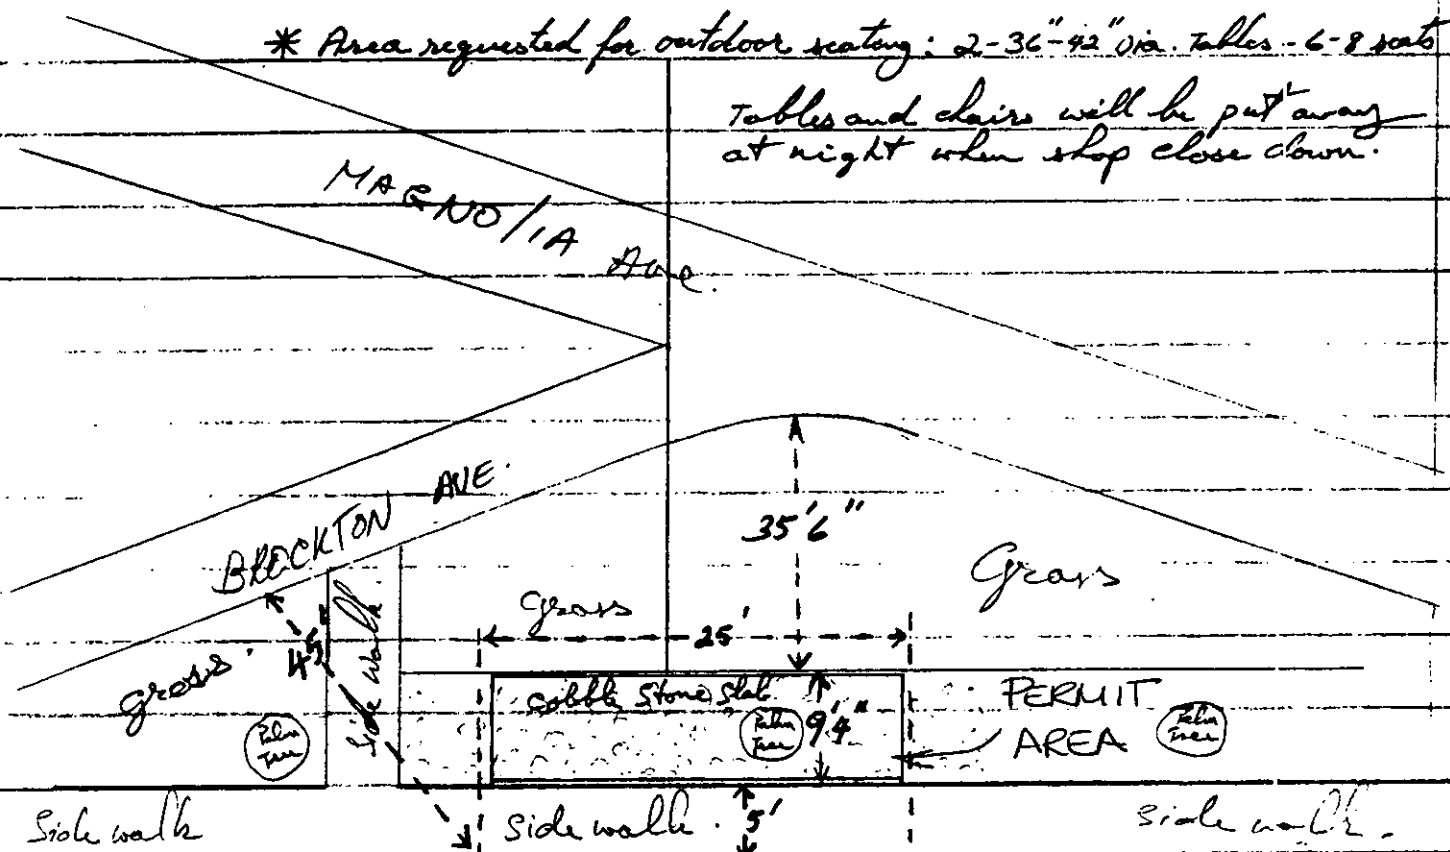 * Area requested for outdoor seating: 2-36"-42" Dia. Tables - 6-8 seats
Tables and chairs will be put away
at night when shop close down.
MAGNOLIA Ave.
BROCKTON AVE.
35'6"
Grass
Grass
25'
45'
Side walk
Grass.
Cobble Stone Slab
9'4"
PERMIT
AREA
Palm
Tree
Palm
Tree
Palm
Tree
Side walk
Side walk.
5'
Side walk.